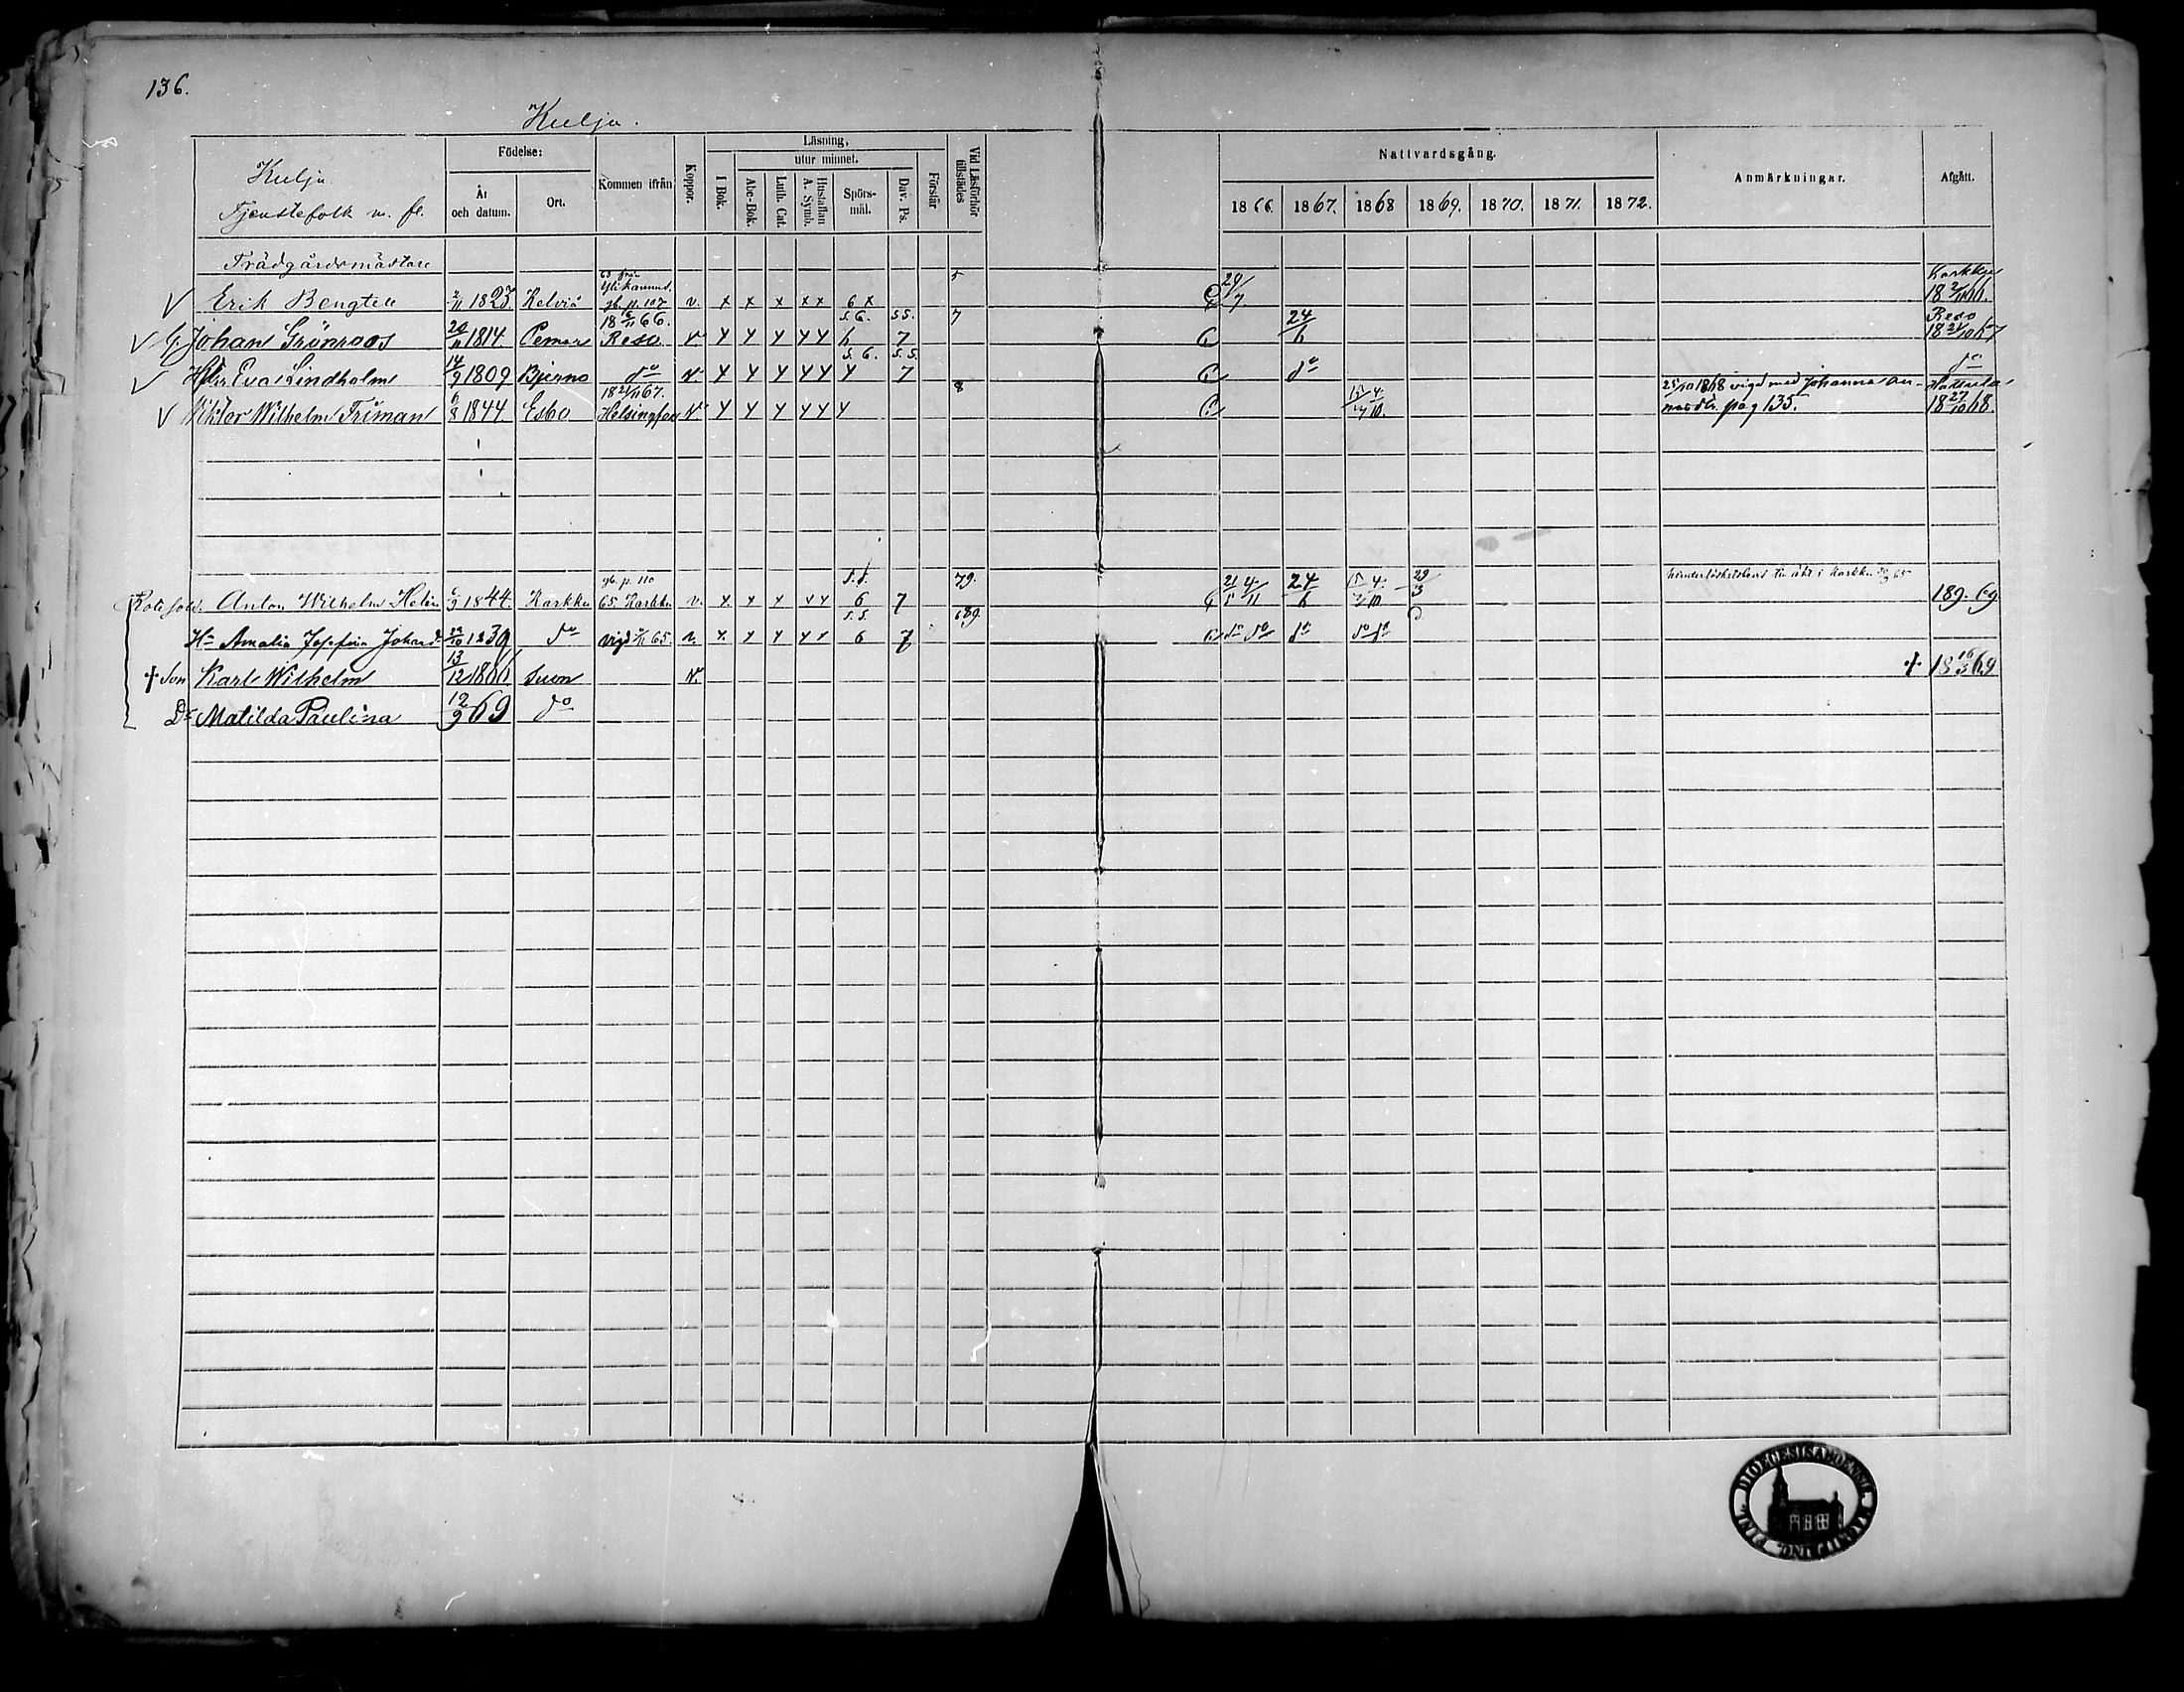 136.
Kulju.
Kulju.
Tjenstefolk m. fl.
Födelse:
År och datum.
Ort.
Kommen ifrån
Koppor.
Läsning,
utur minnet.
I Bok.
Abc-Bok.
Luth. Cat.
Hustaflan A. Symb.
Spörs-mål.
Dav. Ps.
Förstår
Vid Läsförhör tillstädes
Nattvardsgång.
1866. 1867. 1868 1869. 1870. 1871. 1872.
Anmärkningar.
Afgått.
Trädgårdsmästare
63 från Ylikannus. 5 Karkku
Erik Bengten 2/11 1823. Kelviå gb. p. 107 v. x x x x x 6 x 29/7 18 2/11 66.
18 16/11 66. 5.6. 5.5. 7 Reso
Johan Grönroos 20/11 1814. Pemar Reso v. x x x x x 6 7 24/6 18 21/10 67
5.6. 5.5. do
Hu Eva Lindholm 14/9 1809 Bjerno do v. x x x x x x 7 do
18 21/11 67. 8 25/10 1868 vigd med Johanna An- Hattula
Wiktor Wilhelm Friman 6/8 1844. Esbo Helsingfors v. x x x x x x 4/10. nasdr. pag 135. 18 27/10 68.
gb. p. 110 5.5. 79. Karkku
Rotesold. Anton Wilhelm Helin 1844. Karkku 65. Karkku v. x x x x x 6 7 21/5 4/11 24/6 4/10 29/3 189. 69
5.5. 689.
Hu Amalia Josefina Johansdr 22/10 1839 do vigd 65. v. x x x x x 6 7 do do do do do
† Son Karl Wilhelm 13/12 1866 Suon v. † 18 16/3 69
Dr Matilda Paulina 12/9 69 do
DIOECESIS ABOENSIS FINL.